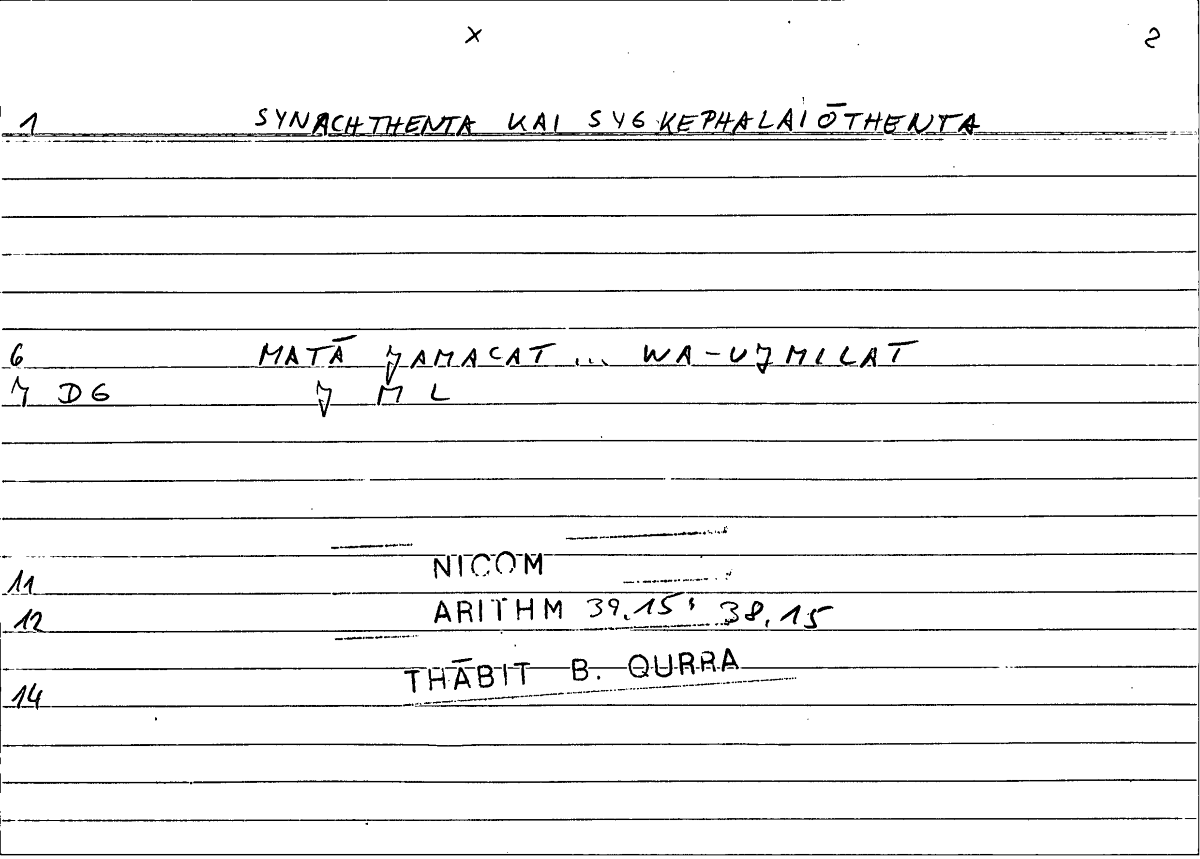 x 2
1 SYNACHTHENTA KAI SYGKEPHALAIŌTHENTA
6 MATĀ JAMACAT ... WA-UJMILAT
7 DG J M L
11 NICOM
12 ARITHM 39,15; 38,15
14 THĀBIT B. QURRA